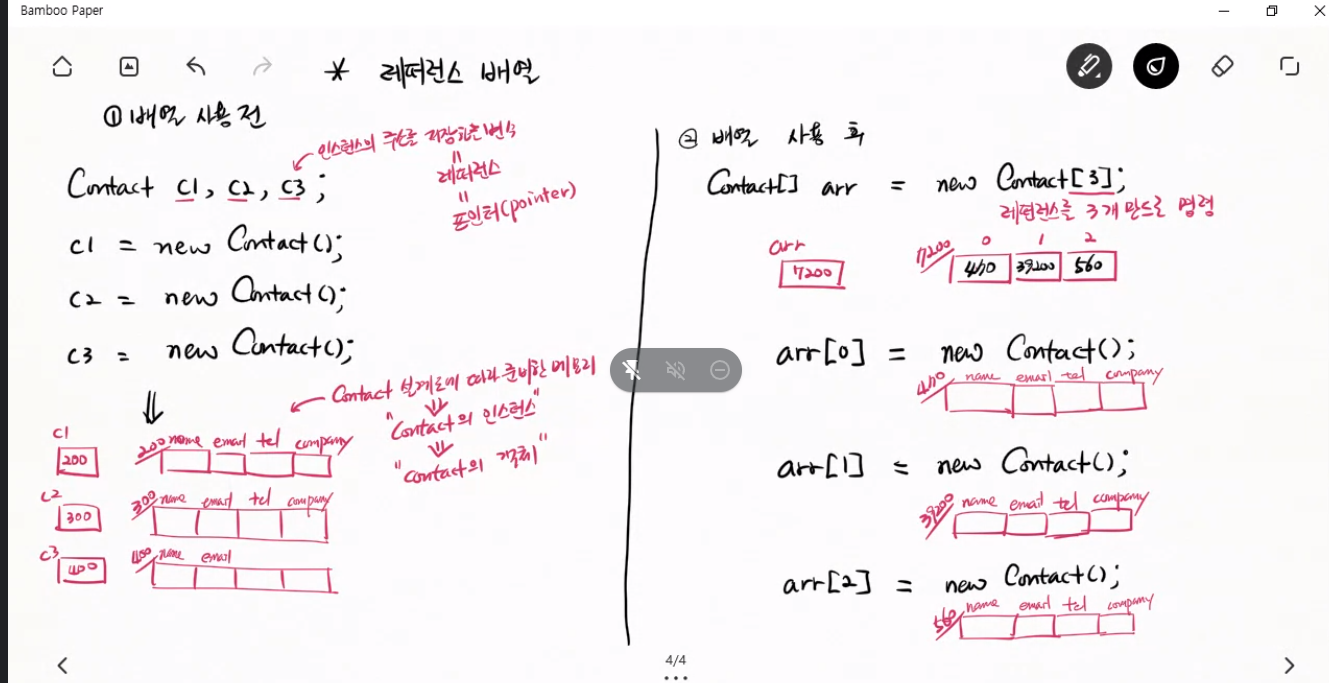 Bamboo Paper
* 레퍼런스 배열
① 배열 사용 전
인스턴스의 주소를 저장하는 변수
"
레퍼런스
"
포인터(pointer)
Contact c1, c2, c3;
c1 = new Contact();
c2 = new Contact();
c3 = new Contact();
⇓
Contact 설계도에 따라 준비한 메모리
⇓
"Contact의 인스턴스"
⇓
"contact의 객체"
c1
200
200 name email tel company
c2
300
300 name email tel company
c3
400
400 name email
② 배열 사용 후
Contact[] arr = new Contact[3];
레퍼런스를 3개 만드는 명령
arr
7200
7200 0 1 2
470 39200 560
arr[0] = new Contact();
470 name email tel company
arr[1] = new Contact();
39200 name email tel company
arr[2] = new Contact();
560 name email tel company
4/4